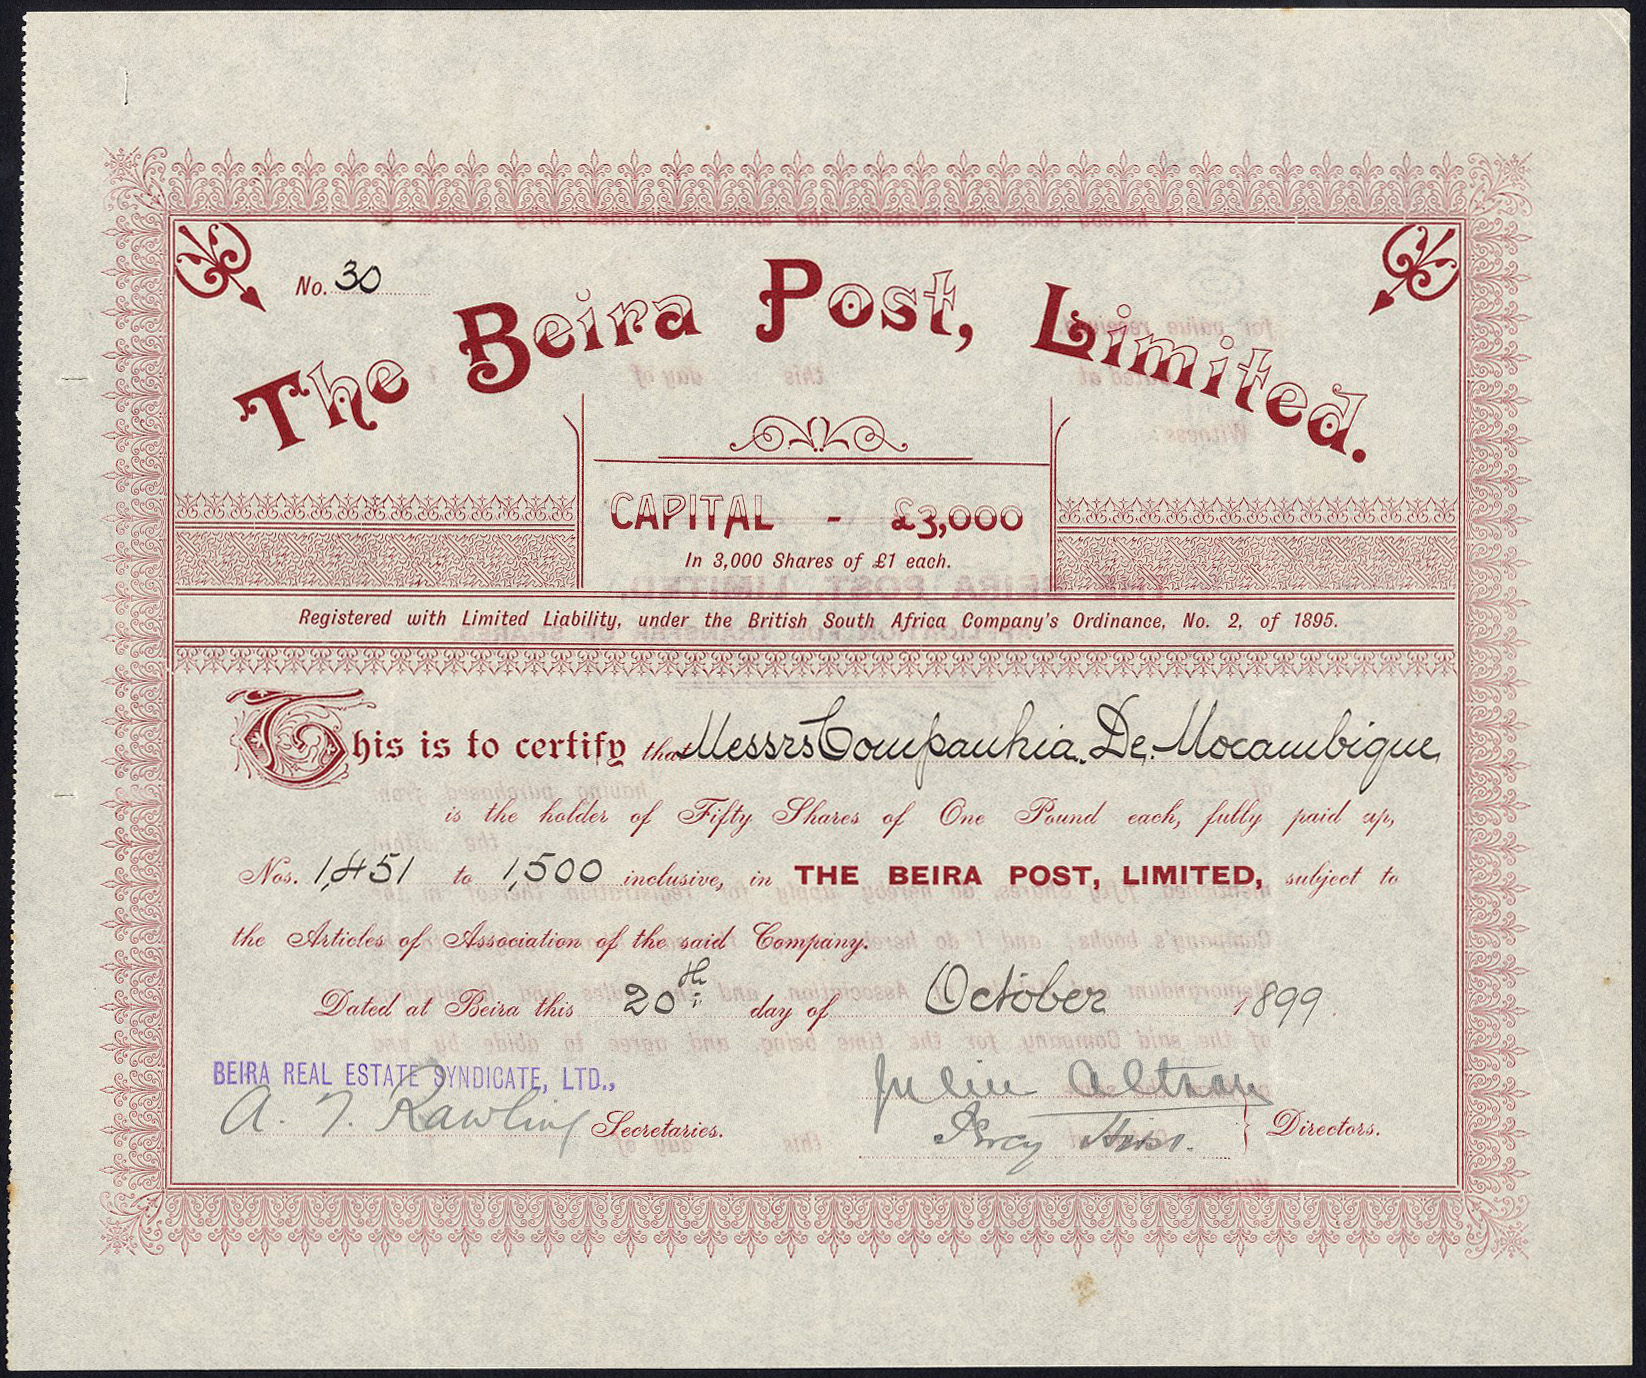 No. 30
The Beira Post, Limited.
CAPITAL - £3,000
In 3,000 Shares of £1 each.
Registered with Limited Liability, under the British South Africa Company's Ordinance, No. 2, of 1895.
This is to certify that Messrs Companhia De Mocambique
is the holder of Fifty Shares of One Pound each, fully paid up,
Nos. 1,451 to 1,500 inclusive, in THE BEIRA POST, LIMITED, subject to
the Articles of Association of the said Company.
Dated at Beira this 20th day of October 1899.
BEIRA REAL ESTATE SYNDICATE, LTD.,
A. T. Rawling Secretaries.
Percy
Directors.